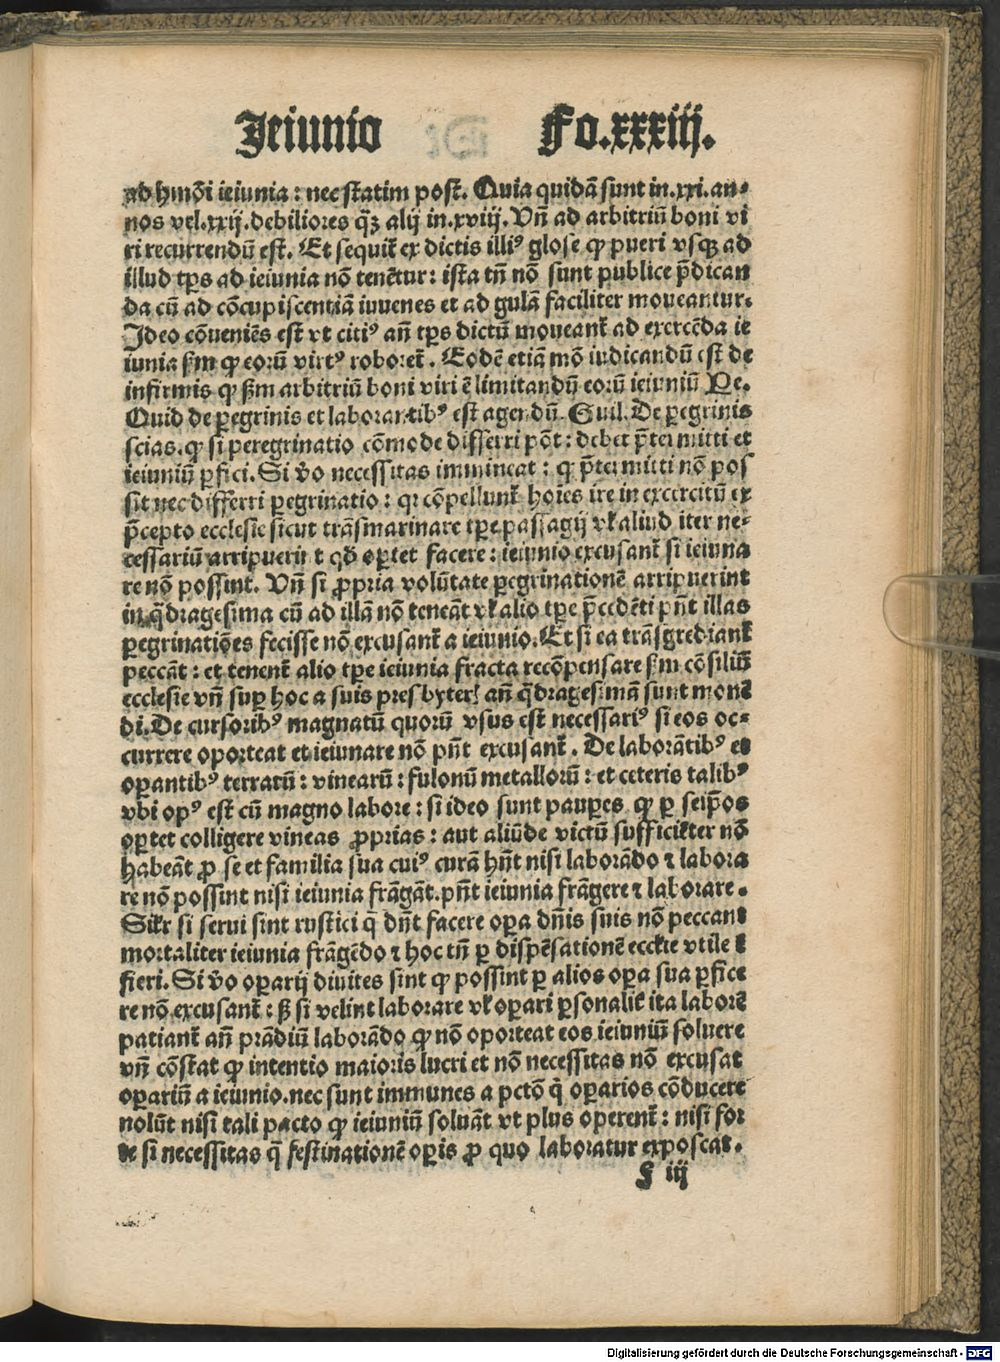 Ieiunio Fo.xxxiij.
ad hmōi ieiunia: nec statim post. Quia quidā sunt in.xxi.an-
nos vel.xxij.debiliores q̄ꝫ alij in.xviij. Vñ ad arbitriū boni vi
ri recurrendū est. Et sequit᷑ ex dictis illiꝰ glose ꝙ pueri vsqꝫ ad
illud tp̄s ad ieiunia nō tenēt̄ur: ista tñ nō sunt publice p̄dican
da cū ad cōcupiscentiā iuuenes et ad gulā faciliter moueantur.
Ideo cōueniēs est vt citiꝰ añ tp̄s dictū moueant᷑ ad exercēda ie
iunia ẜm ꝙ eorū virtꝰ roboret᷑. Eodē etiā mō iudicandū est de
infirmis ꝙ ẜm arbitriū boni viri ē limitandū eorū ieiuniū Pe.
Quid de ꝑegrinis et laborantibꝰ est agendū. Guil. De ꝑegrinis
scias.ꝙ si peregrinatio cōmode differri pōt: debet p̄termitti et
ieiuniū ꝑfici. Si v̄o necessitas immineat: ꝙ p̄termitti nō pos
sit nec differri ꝑegrinatio: qꝛ cōpellunt᷑ hoīes ire in exercitū ex
p̄cepto ecclesie sicut trāsmarinare tp̄e passagij vl̓ aliud iter ne-
cessariū arripuerīt qḋ oꝑtet facere: ieiunio excusant᷑ si ieiuna
re nō possint. Vñ si ꝓpria volūtate ꝑegrinationē arripuerint
in q̄dragesima cū ad illā nō teneāt vl̓ alio tp̄e p̄cedēti pñt illas
ꝑegrinatiōes fecisse nō excusant᷑ a ieiunio. Et si ea trāsgrediant᷑
peccāt: et tenent᷑ alio tp̄e ieiunia fracta recōpensare ẜm cōsiliū
ecclesie vñ suꝑ hoc a suis presbyteris añ q̄dragesimā sunt monē
di. De cursoribꝰ magnatū quorū vsus est necessariꝰ si eos oc-
currere oporteat et ieiunare nō pñt excusant᷑. De laborātibꝰ et
oꝑantibꝰ terrarū: vinearū: fulonū metallorū: et ceteris talibꝰ
vbi opꝰ est cū magno labore: si ideo sunt pauꝑes ꝙ ꝑ seip̄os
oꝑtet colligere vineas ꝓprias: aut aliūde victū sufficiēter nō
habeāt ꝓ se et familia sua cuiꝰ curā hñt nisi laborādo ⁊ labora
re nō possint nisi ieiunia frāgāt.pñt ieiunia frāgere ⁊ laborare.
Sil̓r si serui sint rustici q̄ dñt facere oꝑa dñis suis nō peccant
mortaliter ieiunia frāgēdo ⁊ hoc tñ ꝑ dispēsationē eccl̓ie vtile ē
fieri. Si v̄o oꝑarij diuites sint ꝙ possint ꝑ alios oꝑa sua ꝑfice
re nō excusant᷑: ꝫ si velint laborare vl̓ oꝑari ꝑsonalit᷑ ita laborē
patiant᷑ añ prādiū laborādo ꝙ nō oporteat eos ieiuniū soluere
vñ cōstat ꝙ intentio maioris lucri et nō necessitas nō excusat
oꝑariū a ieiunio. nec sunt immunes a pctō q̄ oꝑarios cōducere
nolūt nisi tali pacto ꝙ ieiuniū soluāt vt plus operent᷑: nisi for
te si necessitas q̄ festinationē oꝑis ꝓ quo laboratur exposcat.
f iij
Digitalisierung gefördert durch die Deutsche Forschungsgemeinschaft - DFG